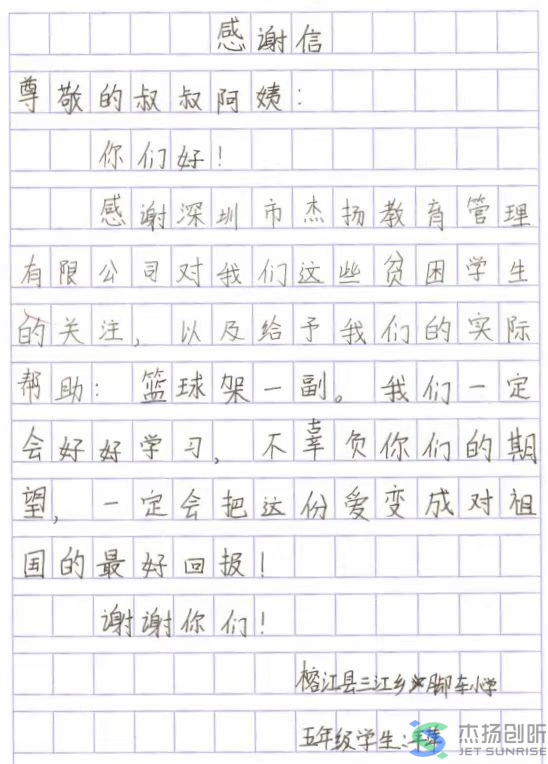 感谢信
尊敬的叔叔阿姨：
你们好！
感谢深圳市杰扬教育管理
有限公司对我们这些贫困学生
的关注，以及给予我们的实际
帮助：篮球架一副。我们一定
会好好学习，不辜负你们的期
望，一定会把这份爱变成对祖
国的最好回报！
谢谢你们！
榕江县三江乡脚车小学
五年级学生：
杰扬创昕
JET SUNRISE